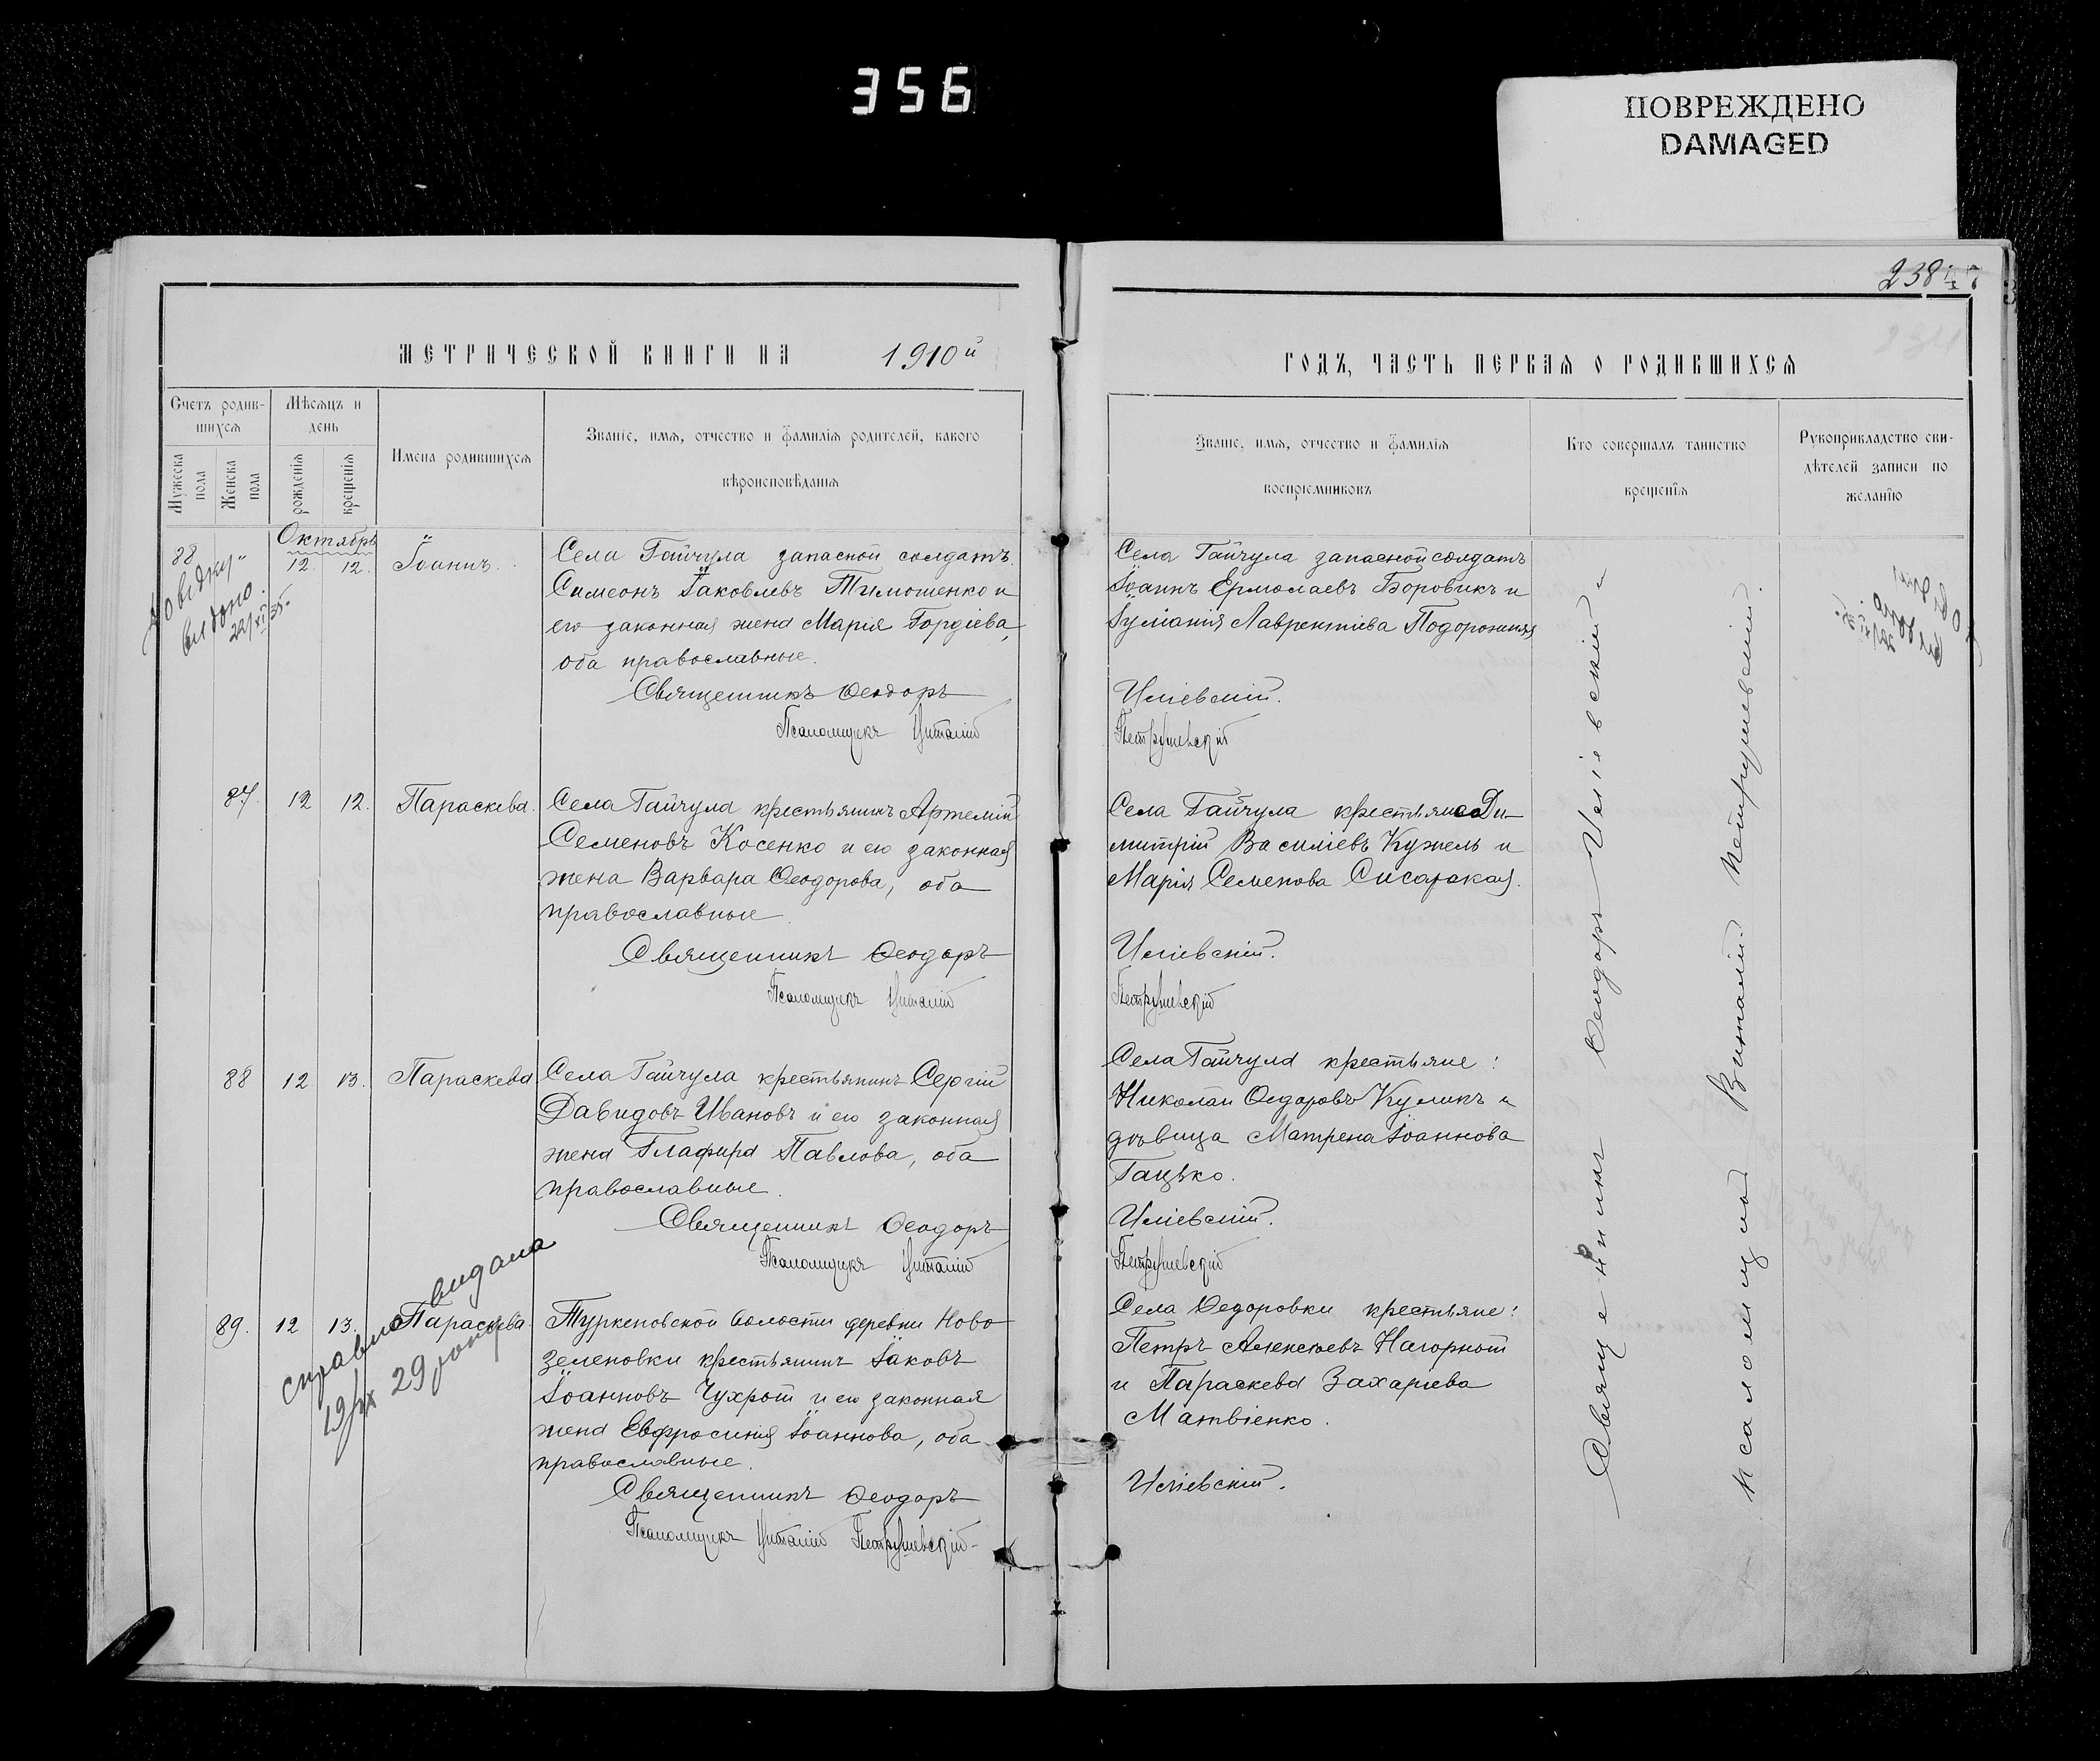 356
ПОВРЕЖДЕНО
DAMAGED
238
МЕТРИЧЕСКОЙ КНИГИ НА 1910й
Счетъ родив-
шихся
Мужеска пола
Женска пола
Мѣсяцъ и
день
рожденія
крещенія
Имена родившихся
Званіе, имя, отчество и фамилія родителей, какого
вѣроисповѣданія
Октябрь
88
12 12.
Іоаннъ.
Села Гайчула запасной солдатъ
Симеонъ Іаковлевъ Тимошенко и
его законная жена Марія Гордіева,
оба православные.
Священникъ Ѳеодоръ
Псаломщикъ Виталій
Довідку
видано.
22/XI 35.
87. 12 12. Параскева.
Села Гайчула крестьянинъ Артемій
Семеновъ Косенко и его законная
жена Варвара Ѳеодорова, оба
православные.
Священникъ Ѳеодоръ
Псаломщикъ Виталій
88 12 13. Параскева
Села Гайчула крестьянинъ Сергій
Давидовъ Ивановъ и его законная
жена Глафира Павлова, оба
православные.
Священникъ Ѳеодоръ
Псаломщикъ Виталій
89. 12 13. Параскева
Туркеновской волости деревни Ново
зеленовки крестьянинъ Іаковъ
Іоанновъ Чухрой и его законная
жена Евфросинія Іоаннова, оба
православные.
Священникъ Ѳеодоръ
Псаломщикъ Виталій Петрушевскій
справка видана
29
ГОДЪ, ЧАСТЬ ПЕРВАЯ О РОДИВШИХСЯ
Званіе, имя, отчество и фамилія
воспріемниковъ
Кто совершалъ таинство
крещенія
Рукоприкладство сви-
дѣтелей записи по
желанію
Села Гайчула запасной солдатъ
Іоаннъ Ермолаевъ Боровикъ и
Іуліанія Лаврентіева Подорожняя
Иліевскій.
Петрушевскій
Села Гайчула крестьяне Ди-
митрій Василіевъ Кужель и
Марія Семенова Сисарская.
Иліевскій.
Петрушевскій
Села Гайчула крестьяне:
Николай Ѳедоровъ Куликъ и
дѣвица Матрена Іоаннова
Гацько.
Иліевскій.
Петрушевскій
Села Ѳедоровки крестьяне:
Петръ Алексѣевъ Нагорный
и Параскева Захаріева
Матвіенко.
Иліевскій.
Священникъ Ѳеодоръ Иліевскій и
псаломщикъ Виталій Петрушевскій.